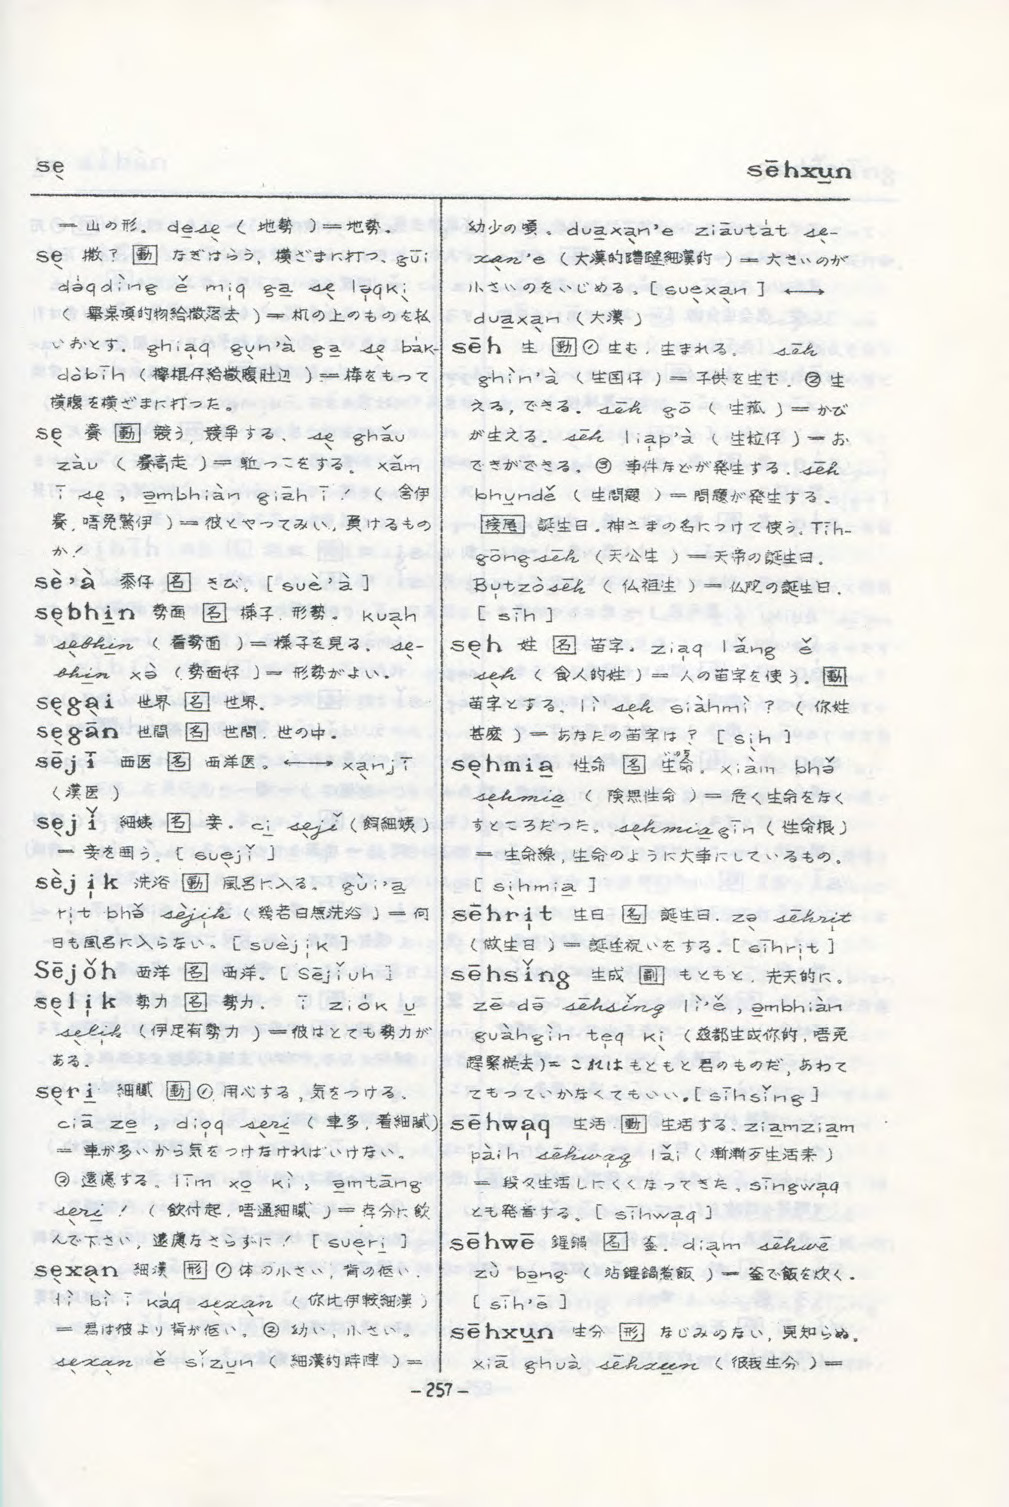 sẹ̀
sēhxṵn
＝山の形. dẹ̀sẹ̀ (地勢)＝地勢。
sẹ̀ 撒? 動 なぎはらう, 横ざまに打つ. gūi
dáqdìng ě mı̍q ga̱ sẹ̀ lǫqkị̀
(舉桌頂的物給撒落去)＝机の上のものを払
いおとす. ghiạq gùn'à ga̱ sẹ̀ bák-
dòbīh (攑棍仔給撒腹肚辺)＝棒をもって
横腹を横ざまに打った。
sẹ̀ 賽 動 競う, 競争する. sẹ̀ ghǎu
zàu (賽高走)＝駈っこをする. xǎm
ī sẹ̀, ə̱mbhiàn giāh ī! (含伊
賽, 唔免驚伊)＝彼とやってみい, 負けるもの
か!
sè'à 黍仔 名 きび. [suè'à]
sẹ̀bhi̱n 勢面 名 様子, 形勢. kuạ̀h
sẹ̀bhi̱n (看勢面)＝様子を見る. sẹ̀-
bhi̱n xə̀ (勢面好)＝形勢がよい.
sẹ̀gại 世界 名 世界.
sẹ̀gān 世間 名 世間, 世の中.
sējī 西医 名 西洋医. ←→ xạ̀njī
(漢医)
sẹ̀jǐ 細姨 名 妾. cị̀ sẹ̀jǐ (飼細姨)
＝妾を囲う. [suẹ̀jǐ]
sèji̍k 洗浴 動 風呂に入る. gùi'a̱
ri̍t bhǒ sèji̍k (幾若日無洗浴)＝何
日も風呂に入らない. [suèji̍k]
Sējǒh 西洋 名 西洋. [Sējǐuh]
sẹ̀li̍k 勢力 名 勢力. ī ziók u̱
sẹ̀li̍k (伊足有勢力)＝彼はとても勢力が
ある.
sẹ̀ri̱ 細膩 動 ① 用心する, 気をつける.
ciā zē, diọq sẹ̀ri̱ (車多, 着細膩)
＝車が多いから気をつけなければいけない.
② 遠慮する. līm xo̱ kị̀, ə̱mtāng
sẹ̀ri̱! (飲付起, 唔通細膩)＝存分に飲
んで下さい, 遠慮なさらずに! [suẹ̀ri̱]
sẹ̀xạ̀n 細漢 形 ① 体の小さい, 背の低い.
lì bì ī káq sẹ̀xạ̀n (你比伊較細漢)
＝君は彼より背が低い. ② 幼い, 小さい.
sẹ̀xạ̀n ě sǐzu̱n (細漢的時陣)＝
幼少の頃. dua̱xạ̀n'e ziāutát sẹ̀-
xạ̀n'e (大漢的蹧躂細漢的)＝大きいのが
小さいのをいじめる. [suẹ̀xạ̀n] ←→
dua̱xạ̀n (大漢)
sēh 生 動 ① 生む, 生まれる. sēh
ghìn'à (生囝仔)＝子供を生む. ② 生
える, できる. sēh gō (生菰)＝かび
が生える. sēh lia̍p'à (生粒仔)＝お
できができる. ③ 事件などが発生する. sēh
bhu̱ndě (生問題)＝問題が発生する.
接尾 誕生日. 神さまの名につけて使う. Tīh-
gōngsēh (天公生)＝天帝の誕生日.
Bu̍tzòsēh (仏祖生)＝仏陀の誕生日.
[sīh]
sẹ̀h 姓 名 苗字. ziạq lǎng ě
sẹ̀h (食人的姓)＝人の苗字を使う. 動
苗字とする. lì sẹ̀h siàhmì? (你姓
甚麼)＝あなたの苗字は? [sị̀h]
sẹ̀hmia̱ 性命 名 生命. xiàm bhǒ
sẹ̀hmia̱ (険無性命)＝危く生命をなく
すところだった. sẹ̀hmia̱gīn (性命根)
＝生命線, 生命のように大事にしているもの.
[sị̀hmia̱]
sēhri̍t 生日 名 誕生日. zə̣̀ sēhri̍t
(做生日)＝誕生祝いをする. [sīhri̍t]
sēhsǐng 生成 副 もともと, 先天的に.
zē də̄ sēhsǐng lì'ě, ə̱mbhiàn
guàhgìn te̍q kị̀ (這都生成你的, 唔免
趕緊提去)＝これはもともと君のものだ, あわて
てもっていかなくてもいい. [sīhsǐng]
sēhwạq 生活 動 生活する. zia̱mzia̱m
pàih sēhwạq lǎi (漸漸歹生活来)
＝段々生活しにくくなってきた. sīngwạq
とも発音する. [sīhwạq]
sēhwē 鍟鍋 名 釜. diạ̀m sēhwē
zù bəng (坫鍟鍋煮飯)＝釜で飯を炊く.
[sīh'ē]
sēhxṵn 生分 形 なじみのない, 見知らぬ.
xiā ghuà sēhxṵn (彼我生分)＝
- 257 -